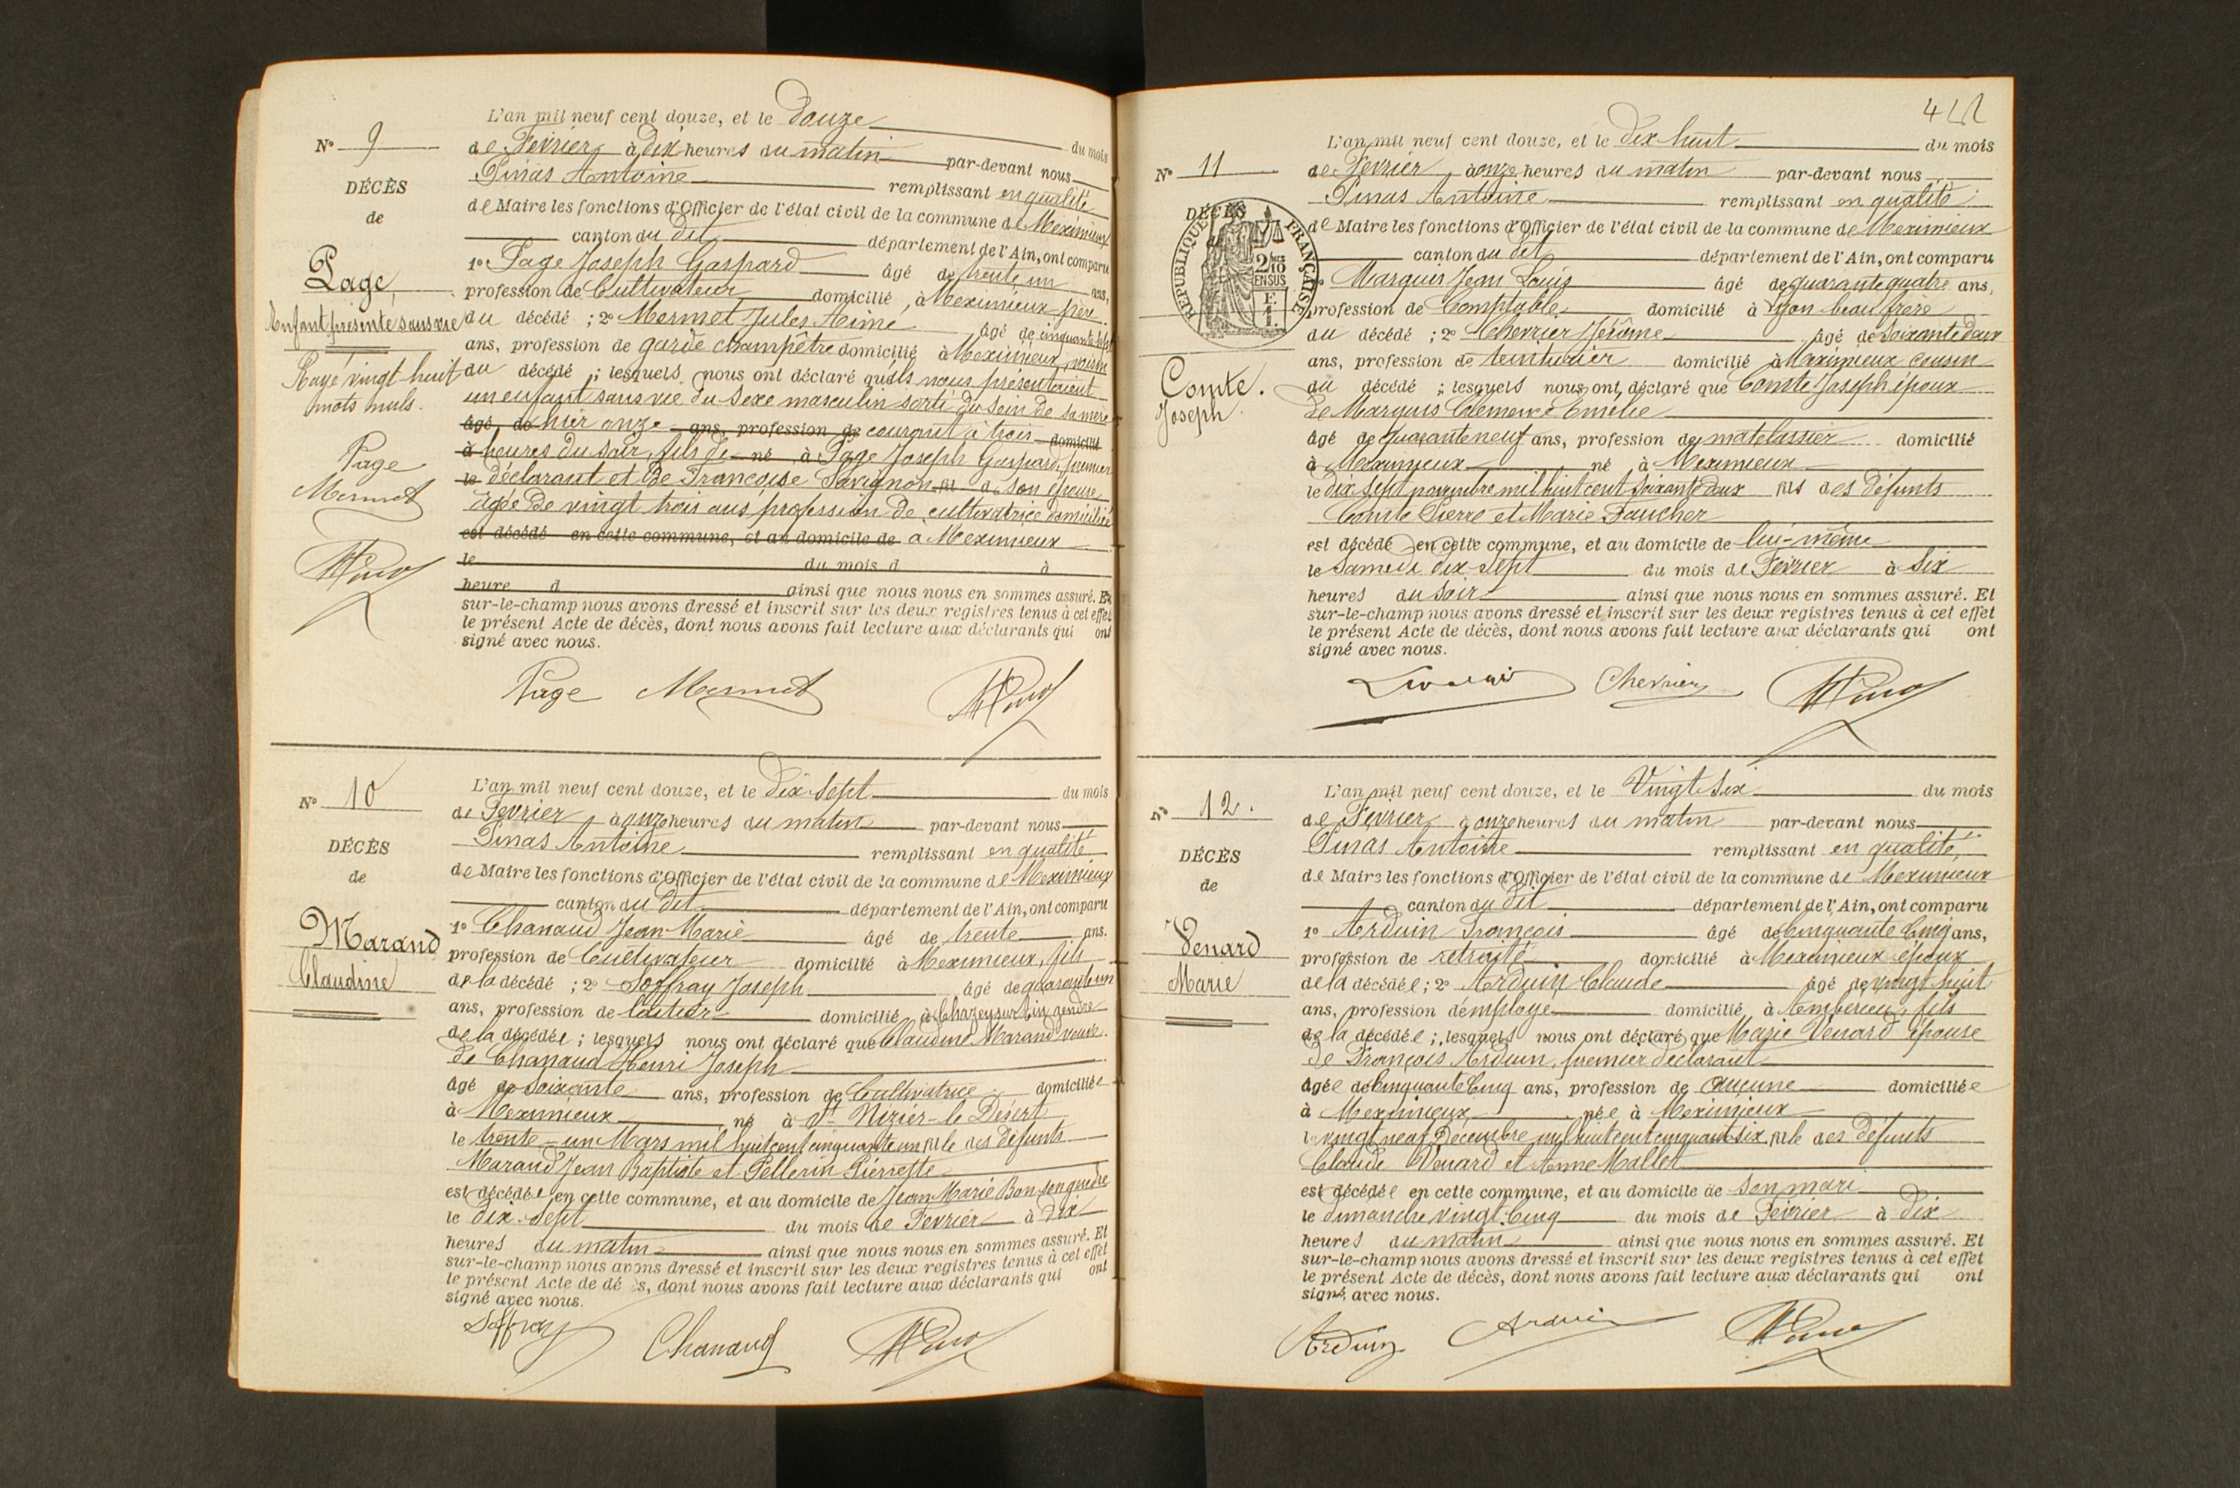 L'an mil neuf cent douze, et le Douze du mois
N° 9
de Février à Dix heures du matin par-devant nous
Pinas Antoine remplissant en qualité
DÉCÈS
de Maire les fonctions d'Officier de l'état civil de la commune de Meximieux
de
canton du dit département de l'Ain, ont comparu
1° Page Joseph Gaspard âgé de trente un ans,
Page,
profession de Cultivateur domicilié à Meximieux père
Enfant présenté sans vie
du décédé ; 2° Mermet Jules Aimé âgé de cinquante
ans, profession de garde champêtre domicilié à Meximieux, voisin
Rayé vingt huit
du décédé ; lesquels nous ont déclaré qu'ils nous présentaient
mots nuls.
un enfant sans vie du sexe masculin sorti du sein de sa mère
âgé de hier onze ans, profession de courant à trois domicilié
à heures du soir, fils de né à Page Joseph Gaspard, premier
Page
le déclarant et de Françoise Savignon fil de son épouse
Mermet
âgée de vingt trois ans profession de cultivatrice domiciliée
est décédé en cette commune, et au domicile de a Meximieux
le du mois d à
heure d ainsi que nous nous en sommes assuré. Et
sur-le-champ nous avons dressé et inscrit sur les deux registres tenus à cet effet
le présent Acte de décès, dont nous avons fait lecture aux déclarants qui ont
signé avec nous.
Page Mermet
L'an mil neuf cent douze, et le Dix-Sept du mois
N° 10
de Février à onze heures du matin par-devant nous
Pinas Antoine remplissant en qualité
DÉCÈS
de Maire les fonctions d'Officier de l'état civil de la commune de Meximieux
de
canton du dit département de l'Ain, ont comparu
1° Chanaud Jean-Marie âgé de trente ans.
Marand
profession de Cultivateur domicilié à Meximieux, fils
Claudine
de la décédé ; 2° Soffray Joseph âgé de quarante un
ans, profession de domicilié à Chazey sur Ain gendre
de la décédée ; lesquels nous ont déclaré que Claudine Marand veuve
de Chanaud Henri Joseph
âgé de soixante ans, profession de Cultivatrice domiciliée
à Meximieux né à St Nizier-le Désert
le trente-un Mars mil huit cent cinquante un fille des défunts
Marand Jean Baptiste et Pellerin Pierrette
est décédée en cette commune, et au domicile de Jean Marie Bon son gendre
le dix-sept du mois de Février à dix
heures du matin ainsi que nous nous en sommes assuré. Et
sur-le-champ nous avons dressé et inscrit sur les deux registres tenus à cet effet
le présent Acte de dé s, dont nous avons fait lecture aux déclarants qui ont
signé avec nous.
Soffray Chanaud
L'an mil neuf cent douze, et le Dix huit du mois
N° 11
de Février à onze heures du matin par-devant nous
Pinas Antoine remplissant en qualité
DÉCÈS
RÉPUBLIQUE FRANÇAISE
2/10 EN SUS
de Maire les fonctions d'Officier de l'état civil de la commune de Meximieux
canton du dit département de l'Ain, ont comparu
Marquis Jean Louis âgé de quarante quatre ans,
profession de Comptable domicilié à Lyon beau frère
du décédé ; 2° Chevrier Jérôme âgé de soixante deux
ans, profession de teinturier domicilié à Meximieux cousin
Comte.
du décédé ; lesquels nous ont déclaré que Comte Joseph époux
Joseph
de Marquis Clémence Emélie
âgé de quarante neuf ans, profession de matelassier domicilié
à Meximieux né à Meximieux
le dix sept novembre mil huit cent soixante deux fils des défunts
Comte Pierre et Marie Faucher
est décédé en cette commune, et au domicile de lui-même
le samedi dix-sept du mois de Février à six
heures du soir ainsi que nous nous en sommes assuré. Et
sur-le-champ nous avons dressé et inscrit sur les deux registres tenus à cet effet
le présent Acte de décès, dont nous avons fait lecture aux déclarants qui ont
signé avec nous.
Chevrier
L'an mil neuf cent douze, et le Vingt Six du mois
N° 12.
de Février à onze heures du matin par-devant nous
Pinas Antoine remplissant en qualité
DÉCÈS
de Maire les fonctions d'Officier de l'état civil de la commune de Meximieux
de
canton du dit département de l'Ain, ont comparu
1° Arduin François âgé de Cinquante Cinq ans,
Venard
profession de retraité domicilié à Meximieux époux
Marie
de la décédée ; 2° Arduin Claude âgé de vingt huit
ans, profession d'employé domicilié à Ambérieu, fils
de la décédée ; lesquels nous ont déclaré que Marie Venard épouse
de François Arduin, premier déclarant
âgée de Cinquante Cinq ans, profession de aucune domiciliée
à Meximieux née à Meximieux
le vingt neuf Décembre mil huit cent cinquante six fille des défunts
Claude Venard et Anne Mallet
est décédée en cette commune, et au domicile de son mari
le dimanche vingt Cinq du mois de Février à dix
heures du matin ainsi que nous nous en sommes assuré. Et
sur-le-champ nous avons dressé et inscrit sur les deux registres tenus à cet effet
le présent Acte de décès, dont nous avons fait lecture aux déclarants qui ont
signé avec nous.
Arduin Arduin